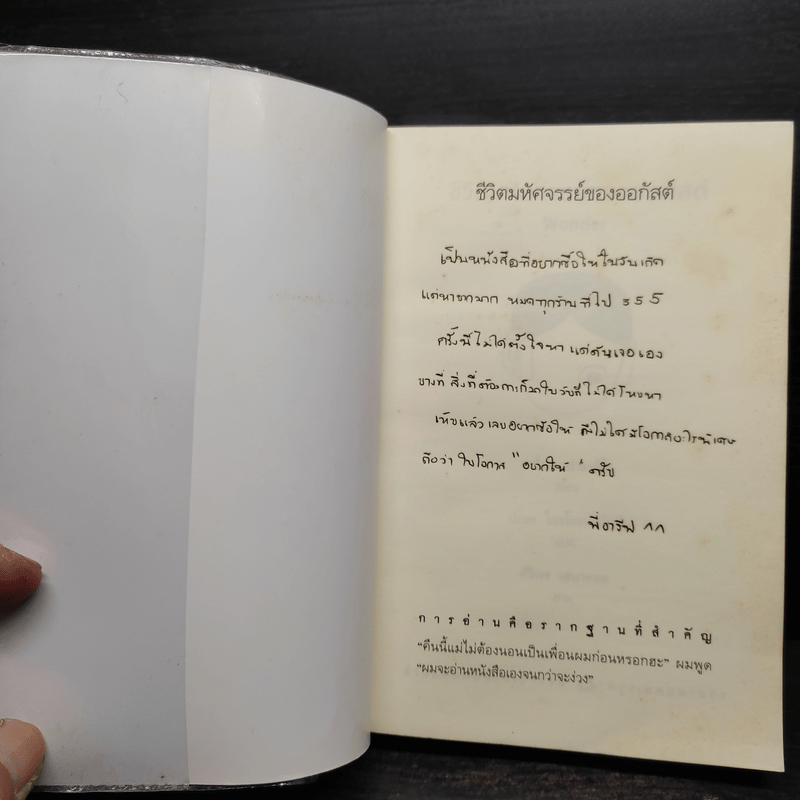 ชีวิตมหัศจรรย์ของออกัสต์
เป็นหนังสือที่อยากซื้อให้ในวันเกิด
แต่หายากมาก หมดทุกร้านที่ไป 555
ครั้งนี้ไม่ได้ตั้งใจหา แต่ดันเจอเอง
บางที สิ่งที่ต้องการก็มาในวันที่ไม่ได้โหยหา
เห็นแล้วเลยอยากซื้อให้ ถึงไม่ได้มีโอกาสอะไรพิเศษ
ถือว่า ในโอกาส "อยากให้" ครับ
พี่อารีฟ ^^
การอ่านคือรากฐานที่สำคัญ
"คืนนี้แม่ไม่ต้องนอนเป็นเพื่อนผมก่อนหรอกฮะ" ผมพูด
"ผมจะอ่านหนังสือเองจนกว่าจะง่วง"